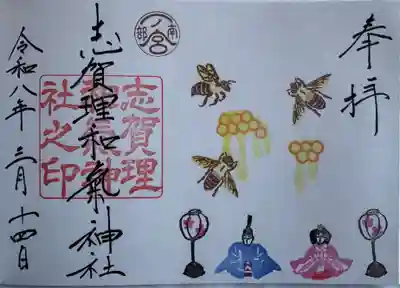 奉拝
南部
一ノ宮
志賀理和氣神社
志賀理
和氣神
社之印
令和八年 三月 十四日